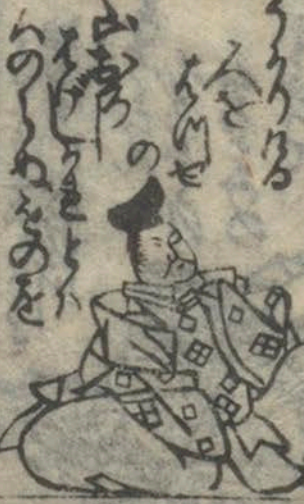 うかりける
人を
はつせ
の
山おろし
はげしかれとハ
いのらぬものを